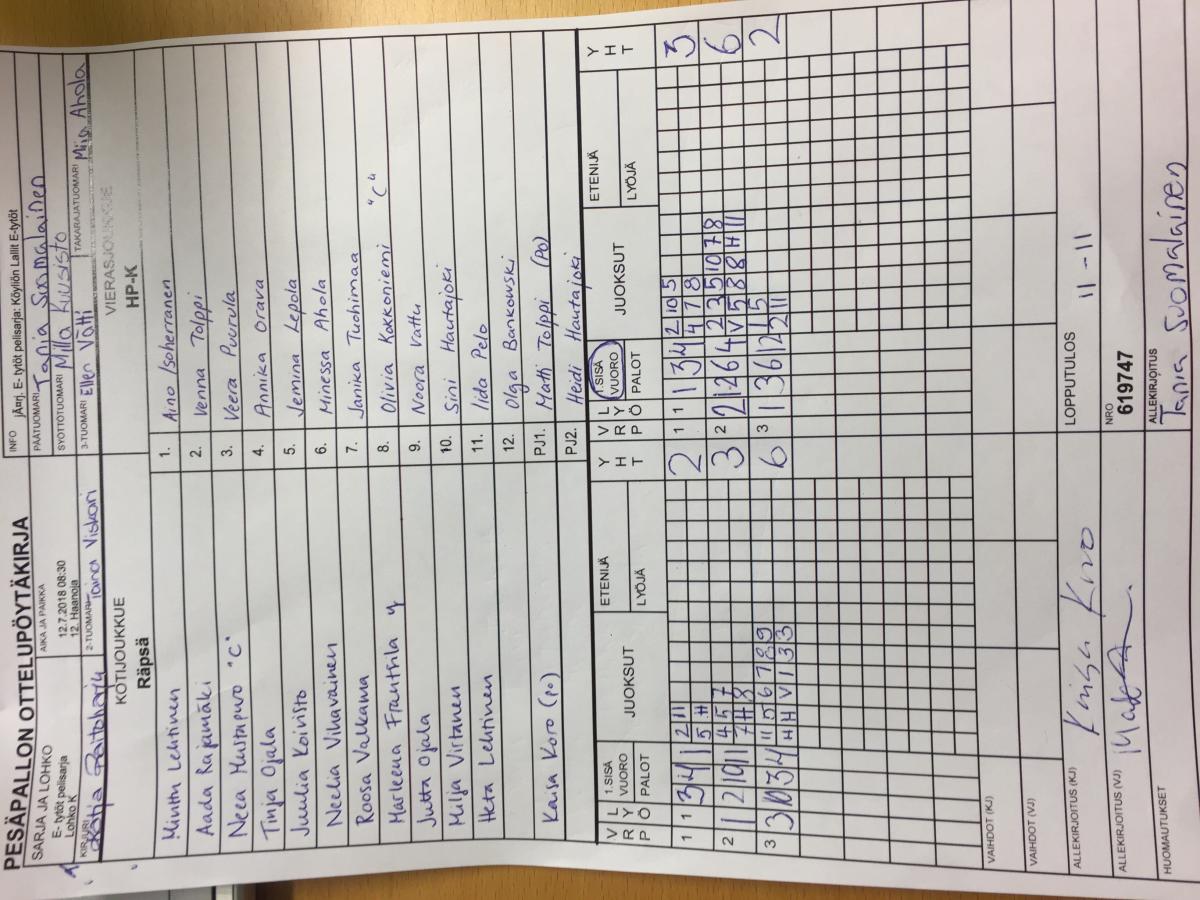 PESÄPALLON OTTELUPÖYTÄKIRJA
INFO jÄrj. E-tytöt pelisarja: Köyliön Lallit E-tytöt
SARJA JA LOHKO
E- tytöt pelisarja
Lohko K
AIKA JA PAIKKA
12.7.2018 08:30
12. Haanoja
PÄÄTUOMARI Tania Suomalainen
SYÖTTÖTUOMARI Milla Kuusisto
KIRJURI Katja Raitoharju
2-TUOMARI Taina Viskari
3-TUOMARI Ellen Vatti
TAKARAJATUOMARI Miia Ahola
KOTIJOUKKUE
Räpsä
VIERASJOUKKUE
HP-K
Minttu Lehtinen 1. Aino Isoherranen
Aada Rajamäki 2. Venna Tolppi
Neea Mustapuro "C" 3. Veera Puurula
Tinja Ojala 4. Annika Orava
Juulia Koivisto 5. Jemina Lepola
Neelia Vihavainen 6. Minessa Ahola
Roosa Valkama 7. Janika Tuohimaa
Marleena Franttila 8. Olivia Kokkoniemi "C"
Jutta Ojala 9. Noora Vattu
Milja Virtanen 10. Sini Hautajoki
Heta Lehtinen 11. Iida Pelo
12. Olga Bankowski
Kaisa Koro (po) PJ1. Matti Tolppi (PO)
PJ2. Heidi Hautajoki
VRP LYÖ 1.SISÄ VUORO PALOT JUOKSUT ETENIJÄ LYÖJÄ YHT
VRP LYÖ 1.SISÄ VUORO PALOT JUOKSUT ETENIJÄ LYÖJÄ YHT
1 1 3 4 2 11 2
5 H
2 1 2 10 11 4 5 7 3
7 H 8
3 3 10 3 4 11 5 6 7 8 9 6
H H V 1 3 3
1 1 1 3 4 2 10 5 3
4 7 8
2 2 1 2 6 4 2 3 5 10 7 8 6
V 5 8 8 H 11
3 1 3 6 12 1 5 2
2 11
VAIHDOT (KJ)
VAIHDOT (VJ)
ALLEKIRJOITUS (KJ)
LOPPUTULOS 11 - 11
ALLEKIRJOITUS (VJ)
NRO
619747
HUOMAUTUKSET
ALLEKIRJOITUS
Tania Suomalainen